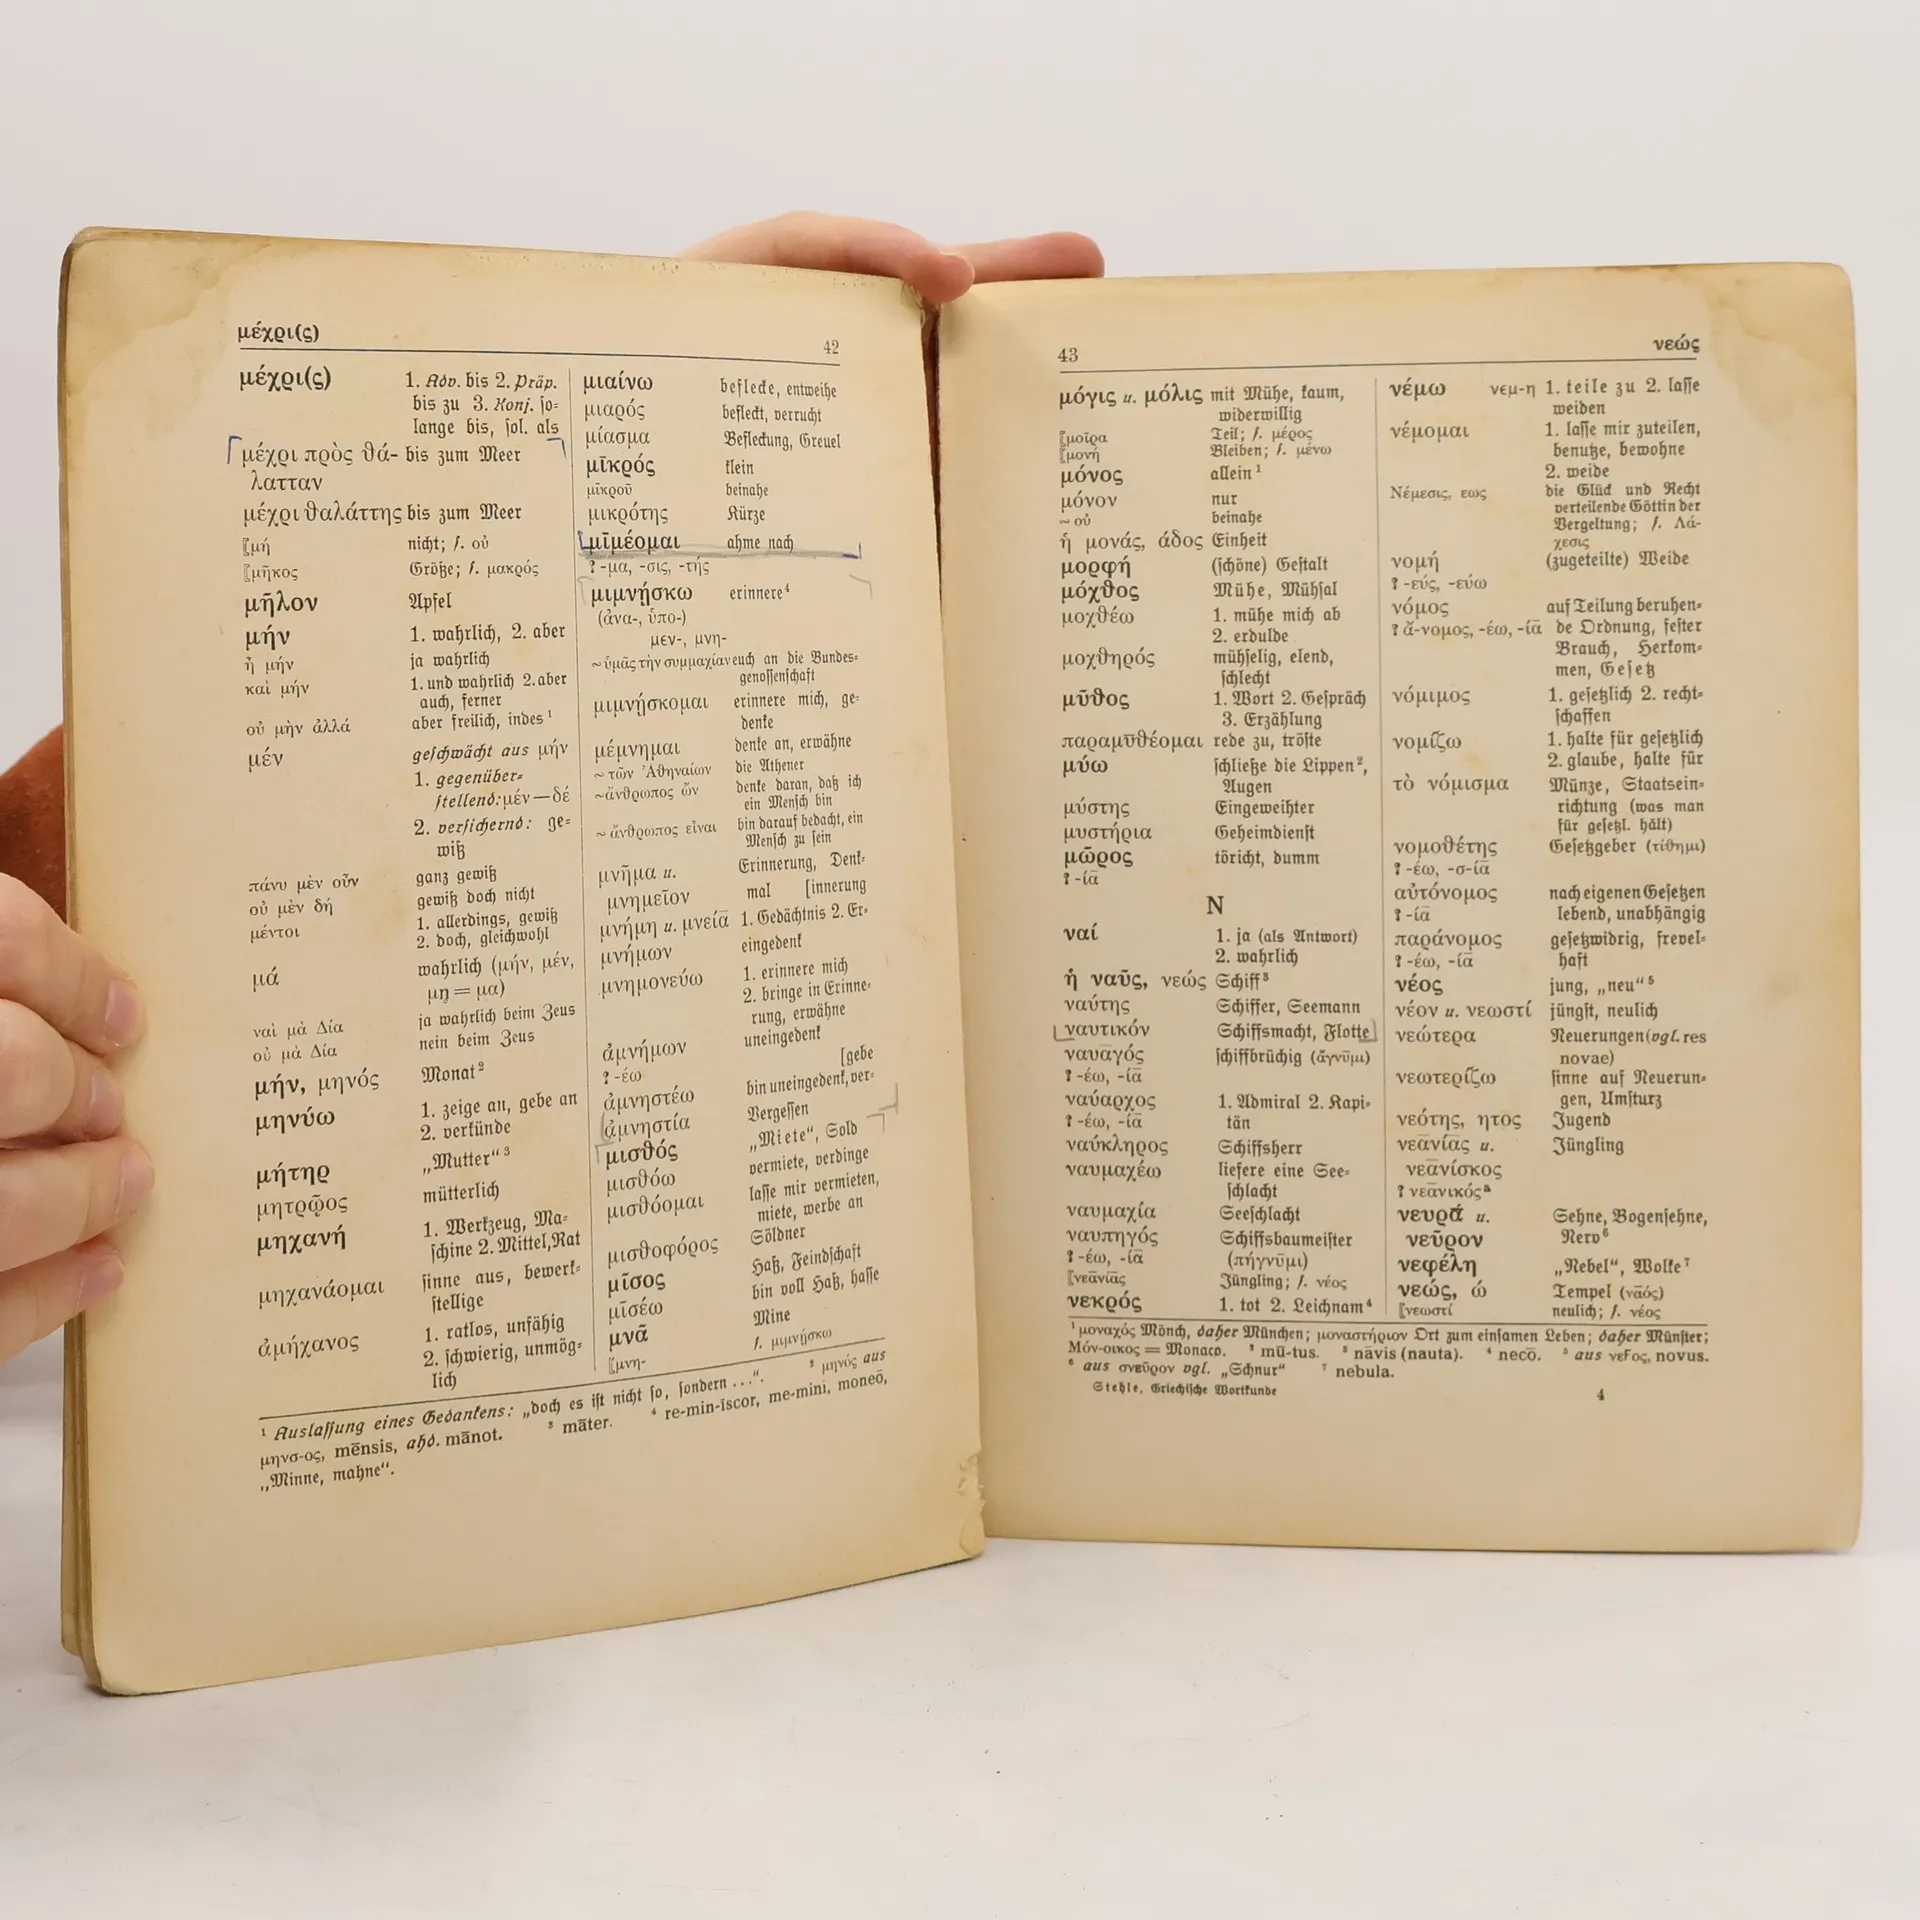 μέχρι(ς) 42
μέχρι(ς) 1. Adv. bis 2. Präp.
bis zu 3. Konj. so-
lange bis, sol. als
μέχρι πρὸς θά- bis zum Meer
λατταν
μέχρι θαλάττης bis zum Meer
[μή nicht; s. οὐ
[μῆκος Größe; s. μακρός
μῆλον Apfel
μήν 1. wahrlich, 2. aber
ἦ μήν ja wahrlich
καὶ μήν 1. und wahrlich 2. aber
auch, ferner
οὐ μὴν ἀλλά aber freilich, indes¹
μέν geschwächt aus μήν
1. gegenüber-
stellend: μέν — δέ
2. versichernd: ge-
wiß
πάνυ μὲν οὖν ganz gewiß
οὐ μὲν δή gewiß doch nicht
μέντοι 1. allerdings, gewiß
2. doch, gleichwohl
μά wahrlich (μήν, μέν,
μη = μα)
ναὶ μὰ Δία ja wahrlich beim Zeus
οὐ μὰ Δία nein beim Zeus
μήν, μηνός Monat²
μηνύω 1. zeige an, gebe an
2. verkünde
μήτηρ „Mutter“³
μητρῷος mütterlich
μηχανή 1. Werkzeug, Ma-
schine 2. Mittel, Rat
μηχανάομαι sinne aus, bewerk-
stellige
ἀμήχανος 1. ratlos, unfähig
2. schwierig, unmög-
lich
μιαίνω beflecke, entweihe
μιαρός befleckt, verrucht
μίασμα Befleckung, Greuel
μῑκρός klein
μῑκροῦ beinahe
μικρότης Kürze
μῑμέομαι ahme nach
? -μα, -σις, -τής
μιμνῄσκω erinnere⁴
(ἀνα-, ὑπο-)
μεν-, μνη-
~ ὑμᾶς τὴν συμμαχίαν euch an die Bundes-
genossenschaft
μιμνῄσκομαι erinnere mich, ge-
denke
μέμνημαι denke an, erwähne
~ τῶν Ἀθηναίων die Athener
~ ἄνθρωπος ὤν denke daran, daß ich
ein Mensch bin
~ ἄνθρωπος εἶναι bin darauf bedacht, ein
Mensch zu sein
μνῆμα u. Erinnerung, Denk-
μνημεῖον mal [innerung
μνήμη u. μνείᾱ 1. Gedächtnis 2. Er-
μνήμων eingedenk
μνημονεύω 1. erinnere mich
2. bringe in Erinne-
rung, erwähne
ἀμνήμων uneingedenk
? -έω [gebe
ἀμνηστέω bin uneingedenk, ver-
ἀμνηστία Vergessen
μισθός „Miete“, Sold
μισθόω vermiete, verdinge
μισθόομαι lasse mir vermieten,
miete, werbe an
μισθοφόρος Söldner
μῖσος Haß, Feindschaft
μῑσέω bin voll Haß, hasse
μνᾶ Mine
[μνη- s. μιμνῄσκω
¹ Auslassung eines Gedankens: „doch es ist nicht so, sondern ...“. ² μηνός aus
μηνσ-ος, mēnsis, ahd. mānot. ³ māter. ⁴ re-min-īscor, me-mini, moneō,
„Minne, mahne“.
43 νεώς
μόγις u. μόλις mit Mühe, kaum,
widerwillig
[μοῖρα Teil; s. μέρος
[μονή Bleiben; s. μένω
μόνος allein¹
μόνον nur
~ οὐ beinahe
ἡ μονάς, άδος Einheit
μορφή (schöne) Gestalt
μόχθος Mühe, Mühsal
μοχθέω 1. mühe mich ab
2. erdulde
μοχθηρός mühselig, elend,
schlecht
μῦθος 1. Wort 2. Gespräch
3. Erzählung
παραμῡθέομαι rede zu, tröste
μύω schließe die Lippen²,
Augen
μύστης Eingeweihter
μυστήρια Geheimdienst
μῶρος töricht, dumm
? -ίᾱ
N
ναί 1. ja (als Antwort)
2. wahrlich
ἡ ναῦς, νεώς Schiff³
ναύτης Schiffer, Seemann
ναυτικόν Schiffsmacht, Flotte
ναυᾱγός schiffbrüchig (ἄγνῡμι)
? -έω, -ίᾱ
ναύαρχος 1. Admiral 2. Kapi-
? -έω, -ίᾱ tän
ναύκληρος Schiffsherr
ναυμαχέω liefere eine See-
schlacht
ναυμαχία Seeschlacht
ναυπηγός Schiffsbaumeister
? -έω, -ίᾱ (πήγνῡμι)
[νεᾱνίᾱς Jüngling; s. νέος
νεκρός 1. tot 2. Leichnam⁴
νέμω νεμ-η 1. teile zu 2. lasse
weiden
νέμομαι 1. lasse mir zuteilen,
benutze, bewohne
2. weide
Νέμεσις, εως die Glück und Recht
verteilende Göttin der
Vergeltung; s. Λά-
χεσις
νομή (zugeteilte) Weide
? -εύς, -εύω
νόμος auf Teilung beruhen-
? ἄ-νομος, -έω, -ίᾱ de Ordnung, fester
Brauch, Herkom-
men, Gesetz
νόμιμος 1. gesetzlich 2. recht-
schaffen
νομίζω 1. halte für gesetzlich
2. glaube, halte für
τὸ νόμισμα Münze, Staatsein-
richtung (was man
für gesetzl. hält)
νομοθέτης Gesetzgeber (τίθημι)
? -έω, -σ-ίᾱ
αὐτόνομος nach eigenen Gesetzen
? -ία lebend, unabhängig
παράνομος gesetzwidrig, frevel-
? -έω, -ίᾱ haft
νέος jung, „neu“⁵
νέον u. νεωστί jüngst, neulich
νεώτερα Neuerungen (vgl. res
novae)
νεωτερίζω sinne auf Neuerun-
gen, Umsturz
νεότης, ητος Jugend
νεᾱνίᾱς u. Jüngling
νεᾱνίσκος
? νεᾱνικός
νευρά u. Sehne, Bogensehne,
νεῦρον Nerv⁶
νεφέλη „Nebel“, Wolke⁷
νεώς, ώ Tempel (νᾱός)
[νεωστί neulich; s. νέος
¹ μοναχός Mönch, daher München; μοναστήριον Ort zum einsamen Leben; daher Münster;
Μόν-οικος = Monaco. ² mū-tus. ³ nāvis (nauta). ⁴ necō. ⁵ aus νεϝος, novus.
⁶ aus σνεῦρον vgl. „Schnur“ ⁷ nebula.
Stehle, Griechische Wortkunde 4